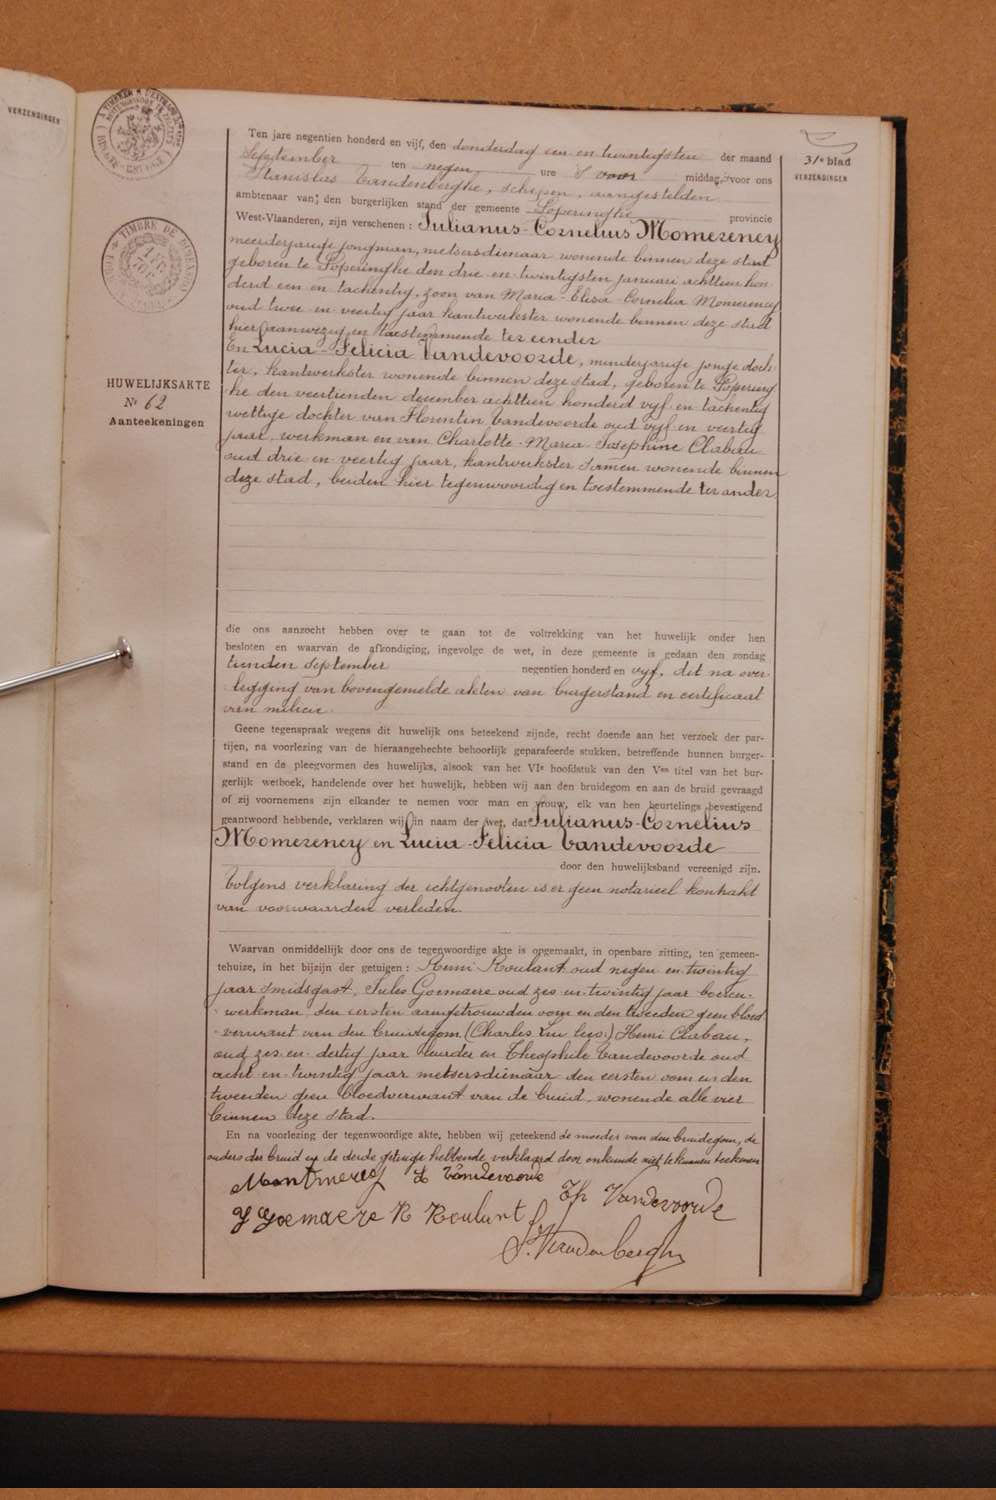 VERZENDINGEN
TIMBRE DE DIMENSION
31e blad
VERZENDINGEN
HUWELIJKSAKTE
No 62
Aanteekeningen
Ten jare negentien honderd en vijf, den donderdag een en twintigsten der maand
September ten negen ure 's voor middag, voor ons
Stanislas Vandenberghe, schepen, aangestelden
ambtenaar van den burgerlijken stand der gemeente Poperinghe provincie
West-Vlaanderen, zijn verschenen : Julianus-Cornelius Momerency
meerderjarige jongman, metsersdienaar wonende binnen deze stad
geboren te Poperinghe den drie en twintigsten januari achttien hon
derd een en tachentig, zoon van Maria-Elisa-Cornelia Momerency
oud twee en veertig jaar kantwerkster wonende binnen deze stad
hier aanwezig en toestemmende ter eender
En Lucia-Felicia Vandevoorde, minderjarige jonge doch-
ter, kantwerkster wonende binnen deze stad, geboren te Popering
he den veertienden december achttien honderd vijf en tachentig
wettige dochter van Florentin Vandevoorde oud vijf en veertig
jaar, werkman en van Charlotte-Maria-Josephine Clabau
oud drie en veertig jaar, kantwerkster samen wonende binnen
deze stad, beiden hier tegenwoordig en toestemmende ter ander
die ons aanzocht hebben over te gaan tot de voltrekking van het huwelijk onder hen
besloten en waarvan de afkondiging, ingevolge de wet, in deze gemeente is gedaan den zondag
tienden september negentien honderd en vijf, dit na over
legging van bovengemelde akten van burgerstand en certificaat
van milicie.
Geene tegenspraak wegens dit huwelijk ons beteekend zijnde, recht doende aan het verzoek der par-
tijen, na voorlezing van de hieraangehechte behoorlijk geparafeerde stukken, betreffende hunnen burger-
stand en de pleegvormen des huwelijks, alsook van het VIe hoofdstuk van den Ven titel van het bur-
gerlijk wetboek, handelende over het huwelijk, hebben wij aan den bruidegom en aan de bruid gevraagd
of zij voornemens zijn elkander te nemen voor man en vrouw, elk van hen beurtelings bevestigend
geantwoord hebbende, verklaren wij, in naam der wet, dat Julianus-Cornelius
Momerency en Lucia-Felicia Vandevoorde
door den huwelijksband vereenigd zijn.
Volgens verklaring der echtgenooten is er geen notarieel kontrakt
van voorwaarden verleden.
Waarvan onmiddellijk door ons de tegenwoordige akte is opgemaakt, in openbare zitting, ten gemeen-
tehuize, in het bijzijn der getuigen : Remi Roulant oud negen en twintig
jaar smidsgast, Jules Goemaere oud zes en twintig jaar boeren-
werkman den eersten aangetrouwden oom en den tweeden geen bloed
verwant van den bruidegom, Henri Clabau,
oud zes en dertig jaar leurder en Theophile Vandevoorde oud
acht en twintig jaar metsersdienaar den eersten oom en den
tweeden geen bloedverwant van de bruid, wonende alle vier
binnen deze stad.
En na voorlezing der tegenwoordige akte, hebben wij geteekend de moeder van den bruidegom, de
ouders der bruid en de derde getuige hebbende verklaard door onkunde niet te kunnen teekenen
Montmerey L Vandevoorde
Th Vandevoorde
J Goemaere R Roulant
S. Vandenberghe